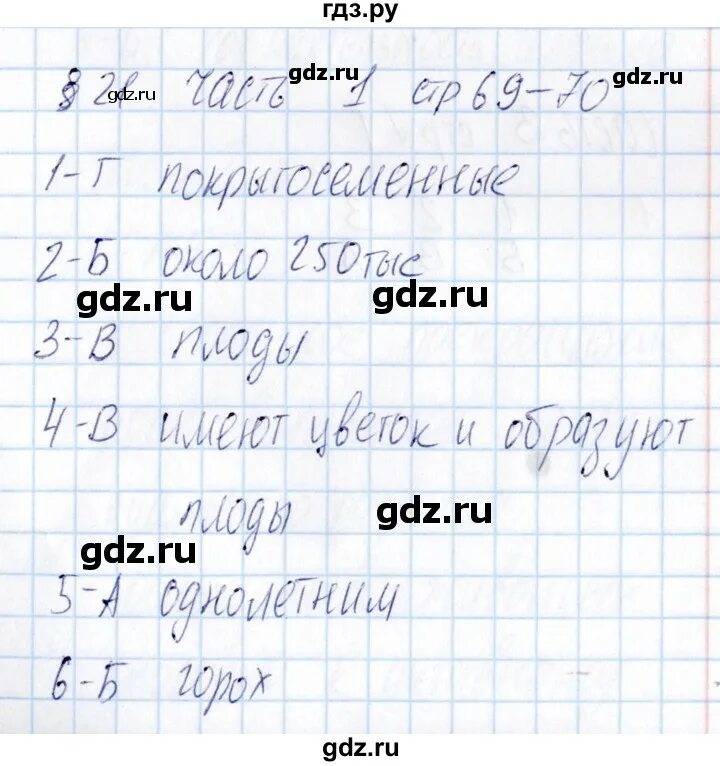 гдз.ру
§ 21 часть 1 стр 69-70
gdz.ru gdz.ru gdz.ru
1-Г покрытосеменные
2-Б около 250 тыс
gdz.ru gdz.ru
3-В плоды
4-В имеют цветок и образуют
плоды
gdz.ru
gdz.ru
5-А однолетним
6-Б горох
gdz.ru